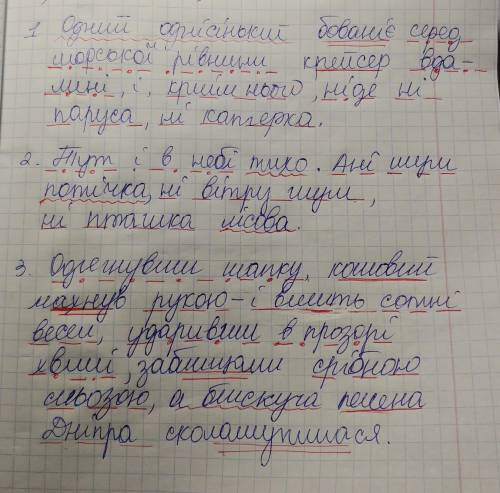 1. Одний одрісінький бованіє серед
морської рівнини крейсер вда-
лині, і, крийм нього, ніде ні
паруса, ні катерка.
2. Тут і в небі тихо. Ані шуму
потічка, ні вітру шум,
ні пташка лісова.
3. Одягнувши шапку, кошовий
махнув рукою – і вмить сотні
весел, ударивши в прозорі
хвилі, заблищали срібною
сльозою, а блискуча пелена
Дніпра сколошутилася.